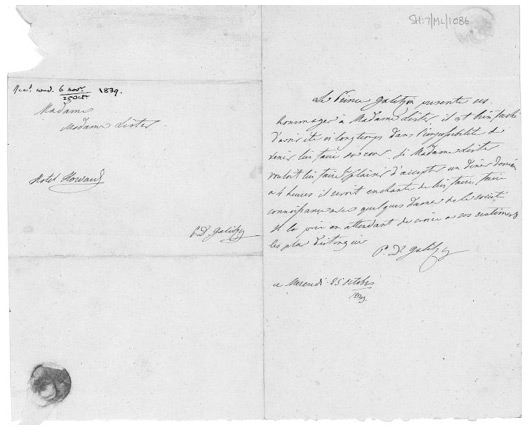 SH:7/ML/1086
Rec.d wed. 6 nov.r 1839.
25 Oct.
Madame
Madame Lister
Hotel Howard
P D Galitzin
Le Prince Galitzin présente ses
hommages à Madame Lister, il est très faché
d'avoir été si longtems dans l'impossibilité de
venir lui faire sa cour. Si Madame Lister
vouloit lui faire le plaisir d'accepter un diner demain
a 4 heures il seroit enchanté de lui faire faire
connoissance avec quelques Dames de la société
Il la prie en attendant de croire a ses sentiments
les plus distingués
P. D. Galitzin
ce Mercredi 25 octobre
1839